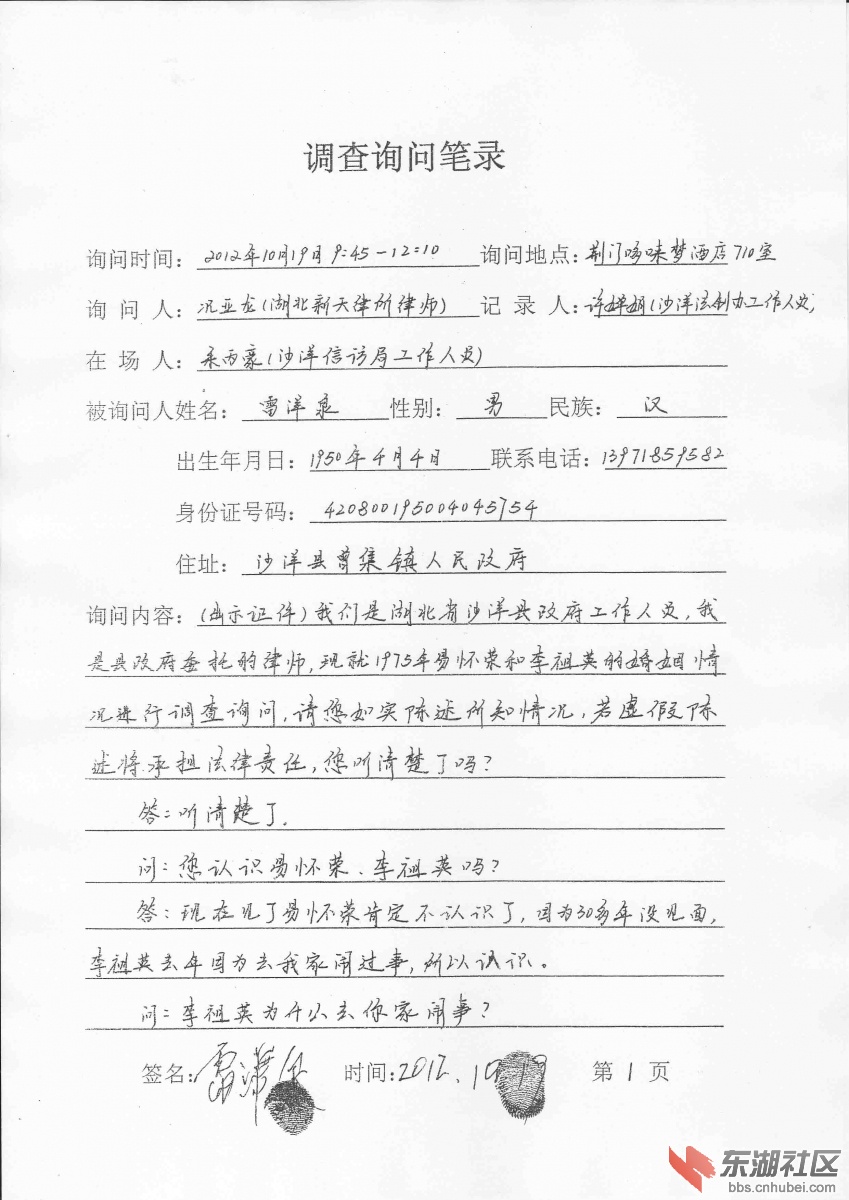 调查询问笔录
询问时间: 2012年10月19日 9:45-12:10 询问地点: 荆门哆味梦酒店710室
询 问 人: 况亚龙(湖北新天律所律师) 记 录 人: 许婵娟(沙洋法制办工作人员)
在 场 人: (沙洋信访局工作人员)
被询问人姓名: 雷洋泉 性别: 男 民族: 汉
出生年月日: 1950年4月4日 联系电话: 13971859582
身份证号码: 420800195004045754
住址: 沙洋县曾集镇人民政府
询问内容: (出示证件)我们是湖北省沙洋县政府工作人员,我
是县政府委托的律师,现就1975年易怀荣和李祖英的婚姻情
况进行调查询问,请您如实陈述所知情况,若虚假陈
述将承担法律责任,您听清楚了吗?
答:听清楚了.
问:您认识易怀荣、李祖英吗?
答:现在见了易怀荣肯定不认识了,因为30多年没见面,
李祖英去年因为去我家闹过事,所以认识。
问:李祖英为什么去你家闹事?
签名: 时间:2012.10.19 第 1 页
东湖社区
bbs.cnhubei.com